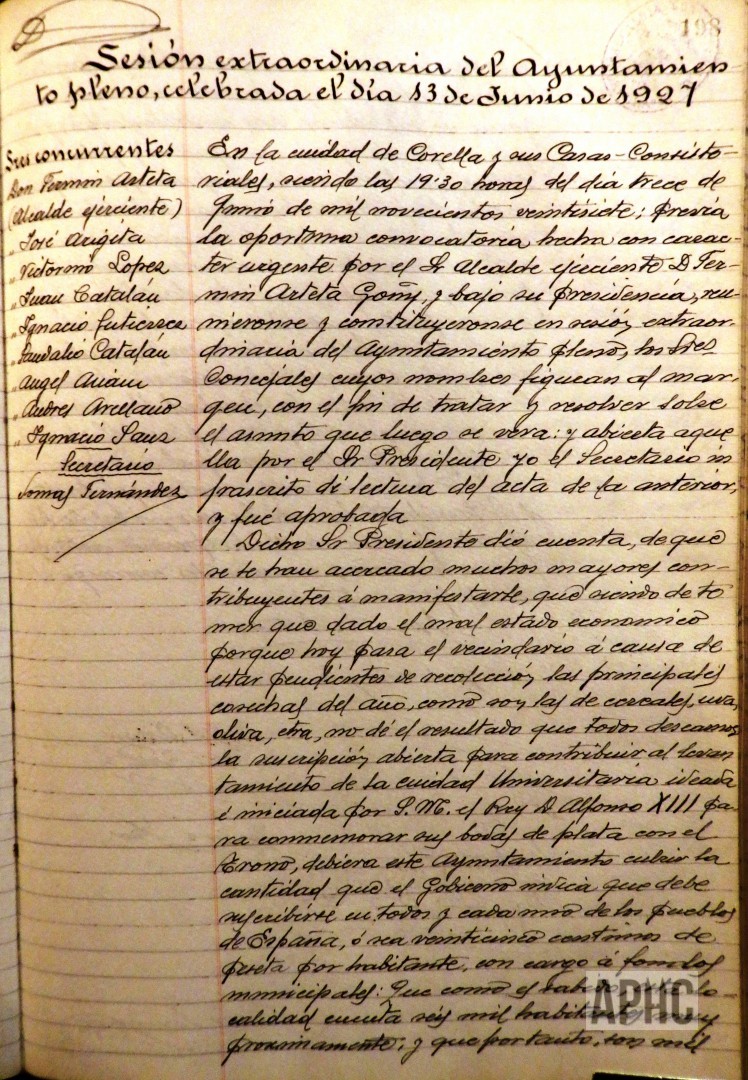 198
Sesión extraordinaria del Ayuntamien-
to pleno, celebrada el día 13 de Junio de 1927
Sres concurrentes
Don Fermin Arteta
(Alcalde ejerciente)
" José Arigita
" Victorino Lopez
" Juan Catalán
" Ignacio Gutierrez
" Sandalio Catalán
" Angel
" Andres Arellano
" Ignacio Sanz
Secretario
Tomas Fernández
En la ciudad de Corella y sus Casas-Consisto-
riales, siendo las 19'30 horas del día trece de
Junio de mil novecientos veintisiete; previa
la oportuna convocatoria hecha con carac-
ter urgente por el Sr Alcalde ejerciente D Fer-
min Arteta Goñi, y bajo su presidencia, reu-
nieronse y constituyeronse en sesión extraor-
dinaria del Ayuntamiento pleno, los Sres
Concejales cuyos nombres figuran al mar-
gen, con el fin de tratar y resolver sobre
el asunto que luego se verá: y abierta aque
lla por el Sr Presidente yo el Secretario in
frascrito dí lectura del acta de la anterior,
y fué aprobada
Dicho Sr Presidente dió cuenta, de que
se le han acercado muchos mayores con-
tribuyentes á manifestarle, que siendo de te
mer que dado el mal estado economico
porque hoy pasa el vecindario á causa de
estar pendientes de recolección las principales
cosechas del año, como son las de cereales, uva,
oliva, etra, no dé el resultado que todos deseamos
la suscripción abierta para contribuir al levan
tamiento de la ciudad Universitaria ideada
é iniciada por S.M. el Rey D Alfonso XIII pa-
ra conmemorar sus bodas de plata con el
Trono, debiera este Ayuntamiento cubrir la
cantidad que el Gobierno indica que debe
suscribirse en todos y cada uno de los pueblos
de España, ó sea veinticinco centimos de
peseta por habitante, con cargo á fondos
municipales: Que como es sabido esta lo-
calidad cuenta seis mil habitantes muy
proximamente; y que por tanto, son mil
APHC